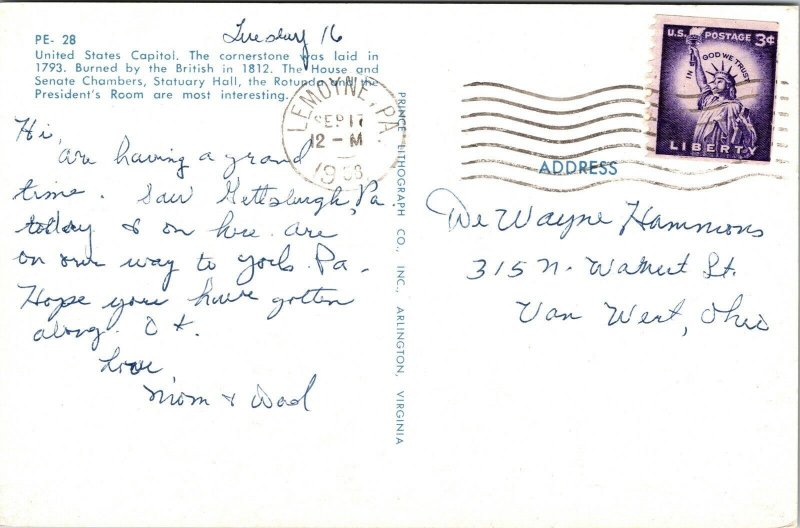 Tuesday 16
PE- 28
United States Capitol. The cornerstone was laid in
1793. Burned by the British in 1812. The House and
Senate Chambers, Statuary Hall, the Rotunda and the
President's Room are most interesting.
LEMOYNE, PA.
SEP 17
12 - M
1958
U.S. POSTAGE 3¢
IN GOD WE TRUST
LIBERTY
Hi,
are having a grand
time. Saw Gettsburgh, Pa
today & on here are
on our way to York Pa.
Hope you have gotten
along O.K.
Love
Mom & Dad
PRINCE LITHOGRAPH CO., INC., ARLINGTON, VIRGINIA
ADDRESS
De Wayne Hammons
315 N. Walnut St.
Van Wert, Ohio